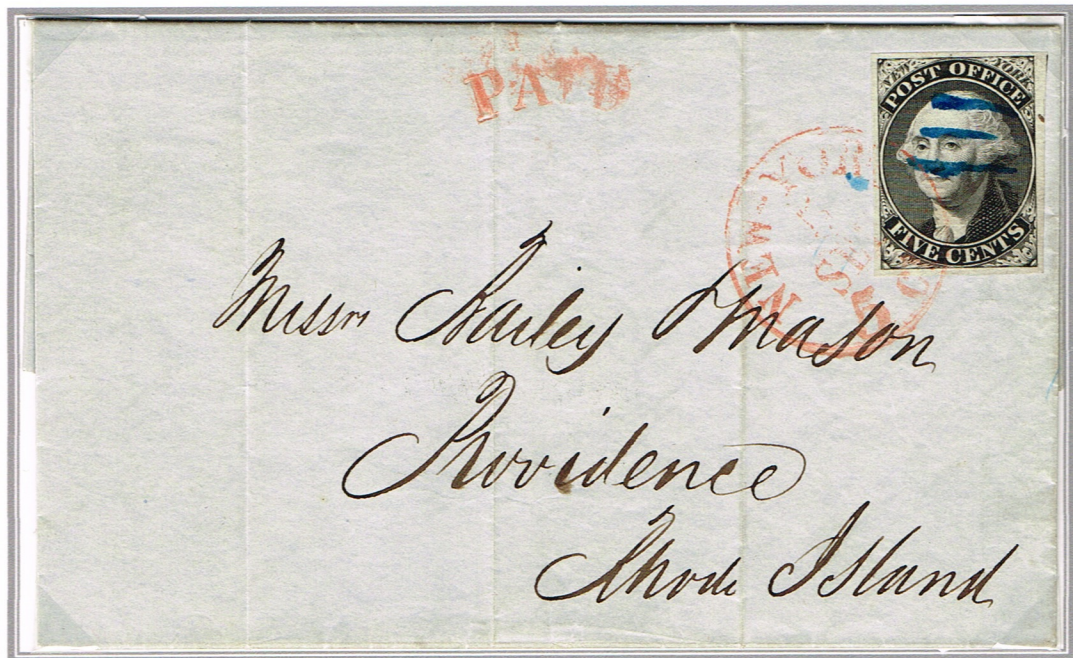 PAID
NEW YORK
POST OFFICE
FIVE CENTS
NEW-YOR
Messrs Bailey & Mason
Providence
Rhode Island